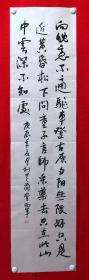 向晚意不適驅車登古原夕陽無限好只是
近黄昏松下問童子言師采藥去只在此山
中雲深不知處